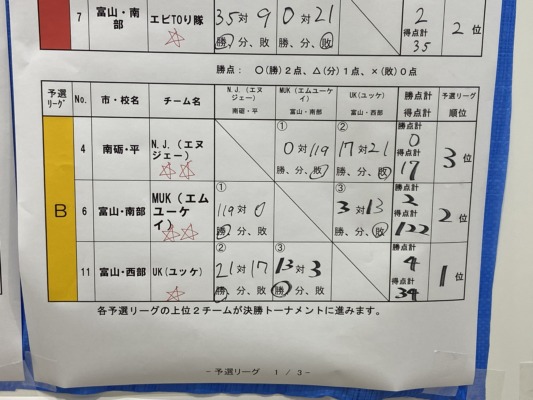 7 富山・南部 エビTOり隊 35対9 0対21 2 得点計 35 2位
勝、分、敗 勝、分、敗
勝点： ○(勝)２点、△(分)１点、×(敗)０点
予選リーグ No. 市・校名 チーム名 N.J.(エヌジェー) 南砺・平 MUK(エムユーケイ) 富山・南部 UK(ユッケ) 富山・西部 勝点計 得点計 予選リーグ順位
B
4 南砺・平 N.J.（エヌジェー） ① 0対119 勝、分、敗 ② 17対21 勝、分、敗 勝点計 0 得点計 17 3位
6 富山・南部 MUK（エムユーケイ） ① 119対0 勝、分、敗 ③ 3対13 勝、分、敗 勝点計 2 得点計 122 2位
11 富山・西部 UK(ユッケ) ② 21対17 勝、分、敗 ③ 13対3 勝、分、敗 勝点計 4 得点計 34 1位
各予選リーグの上位２チームが決勝トーナメントに進みます。
- 予選リーグ 1 / 3 -